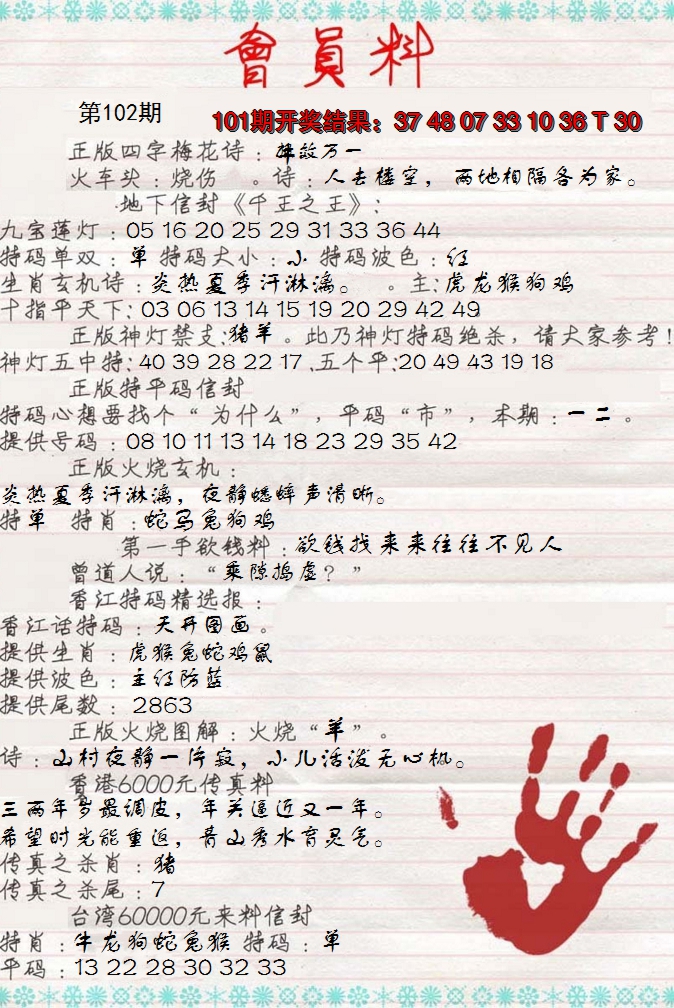 會員料
第102期
101期开奖结果：37 48 07 33 10 36 T 30
正版四字梅花诗：挂敌万一
火车头：烧伤 。诗：人去楼空，两地相隔各为家。
地下信封《千王之王》：
九宝莲灯：05 16 20 25 29 31 33 36 44
特码单双：单 特码大小：小 特码波色：红
生肖玄机诗：炎热夏季汗淋漓。 。主：虎龙猴狗鸡
十指平天下：03 06 13 14 15 19 20 29 42 49
正版神灯禁支：猪羊。此乃神灯特码绝杀，请大家参考！
神灯五中特：40 39 28 22 17 .五个平：20 49 43 19 18
正版特平码信封
特码心想要找个“为什么”，平码“市”，本期：一二。
提供号码：08 10 11 13 14 18 23 29 35 42
正版火烧玄机：
炎热夏季汗淋漓，夜静蟋蟀声清晰。
特单 特肖：蛇马兔狗鸡
第一手欲钱料：欲钱找来来往往不见人
曾道人说：“乘隙捣虚？”
香江特码精选报：
香江话特码：天开图画。
提供生肖：虎猴兔蛇鸡鼠
提供波色：主红防蓝
提供尾数：2863
正版火烧图解：火烧“羊”。
诗：山村夜静一片寂，小儿活泼无心机。
香港6000元传真料
三两年岁最调皮，年关逼近又一年。
希望时光能重返，青山秀水育灵气。
传真之杀肖：猪
传真之杀尾：7
台湾60000元来料信封
特肖：牛龙狗蛇兔猴 特码：单
平码：13 22 28 30 32 33